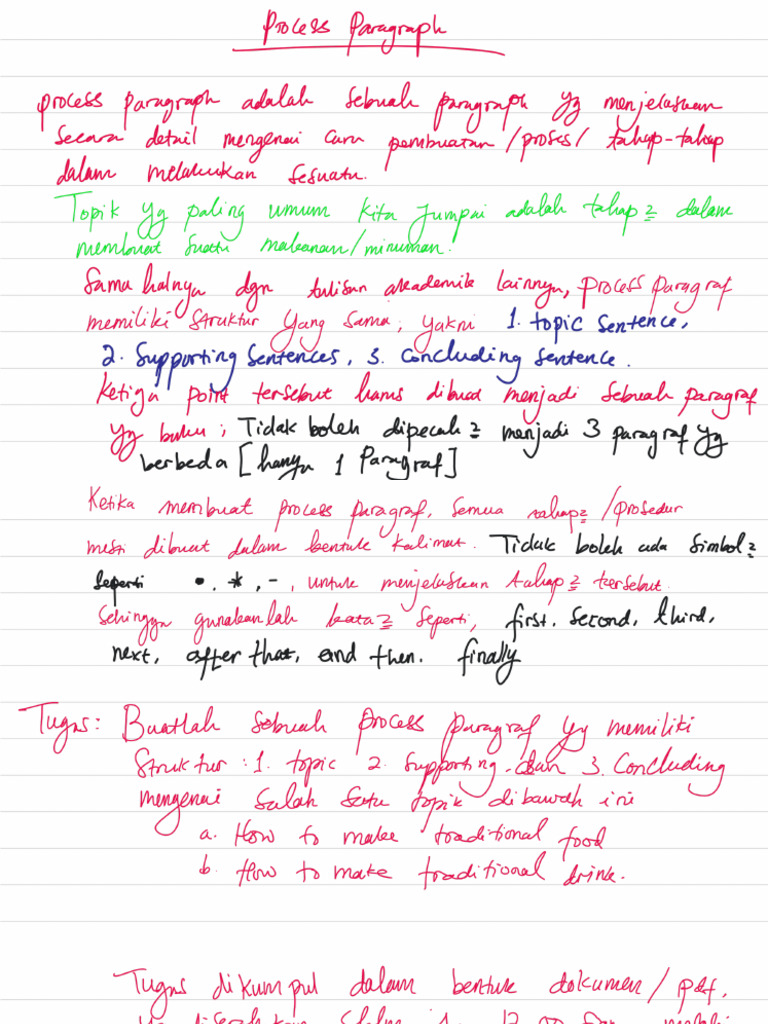 Process Paragraph
process paragraph adalah sebuah paragraph yg menjelaskan
secara detail mengenai cara pembuatan/proses/tahap-tahap
dalam melakukan sesuatu.
Topik yg paling umum kita jumpai adalah tahap2 dalam
membuat suatu makanan/minuman.
Sama halnya dgn tulisan akademik lainnya, process paragraf
memiliki struktur yang sama, yakni 1. topic sentence,
2. Supporting sentences, 3. Concluding sentence.
Ketiga point tersebut harus dibuat menjadi sebuah paragraf
yg buku; Tidak boleh dipecah2 menjadi 3 paragraf yg
berbeda [hanya 1 Paragraf]
Ketika membuat process paragraf, semua tahap2/prosedur
mesti dibuat dalam bentuk kalimat. Tidak boleh ada simbol2
seperti •, *, -, untuk menjelaskan tahap2 tersebut
Sehingga gunakanlah kata2 seperti, first, second, third,
next, after that, and then. finally
Tugas: Buatlah sebuah process paragraf yg memiliki
Struktur: 1. topic 2. supporting dan 3. Concluding
mengenai salah satu topik dibawah ini
a. How to make traditional food
b. How to make traditional drink.
Tugas dikumpul dalam bentuk dokumen/pdf.